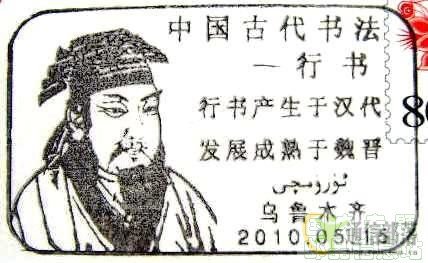 中国古代书法
—行书
行书产生于汉代
发展成熟于魏晋
ئۈرۈمچى
乌鲁木齐
2010.05.15
80